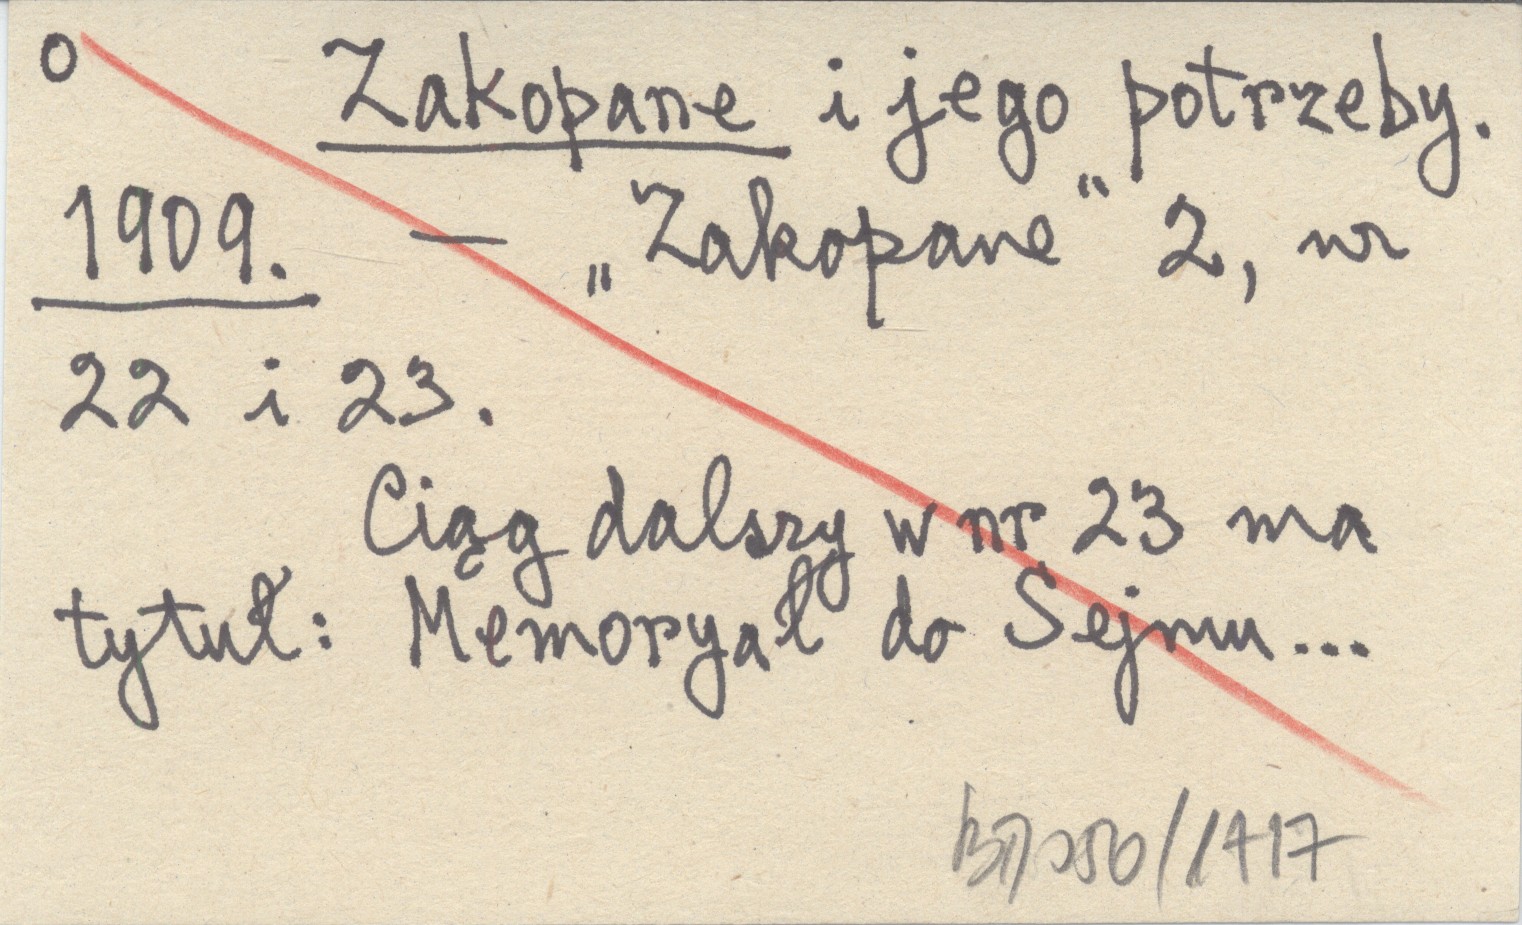 o Zakopane i jego potrzeby.
1909. — „Zakopane" 2, nr
22 i 23.
Ciąg dalszy w nr 23 ma
tytuł: Memoryał do Sejmu...